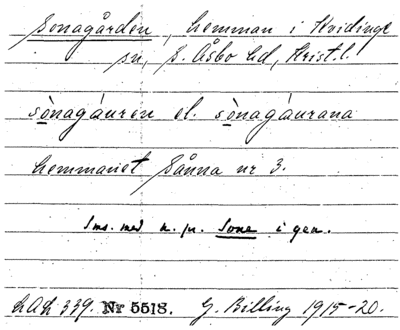 Sonagården, hemman i Hvidinge
sn, S. Åsbo hd, Krist. l.
sònagáuren el. sònagáurana
hemmanet Sånna nr 3.
Sms. med n. pr. Sone i gen.
LAL 339. Nr 5518. G. Billing 1915-20.